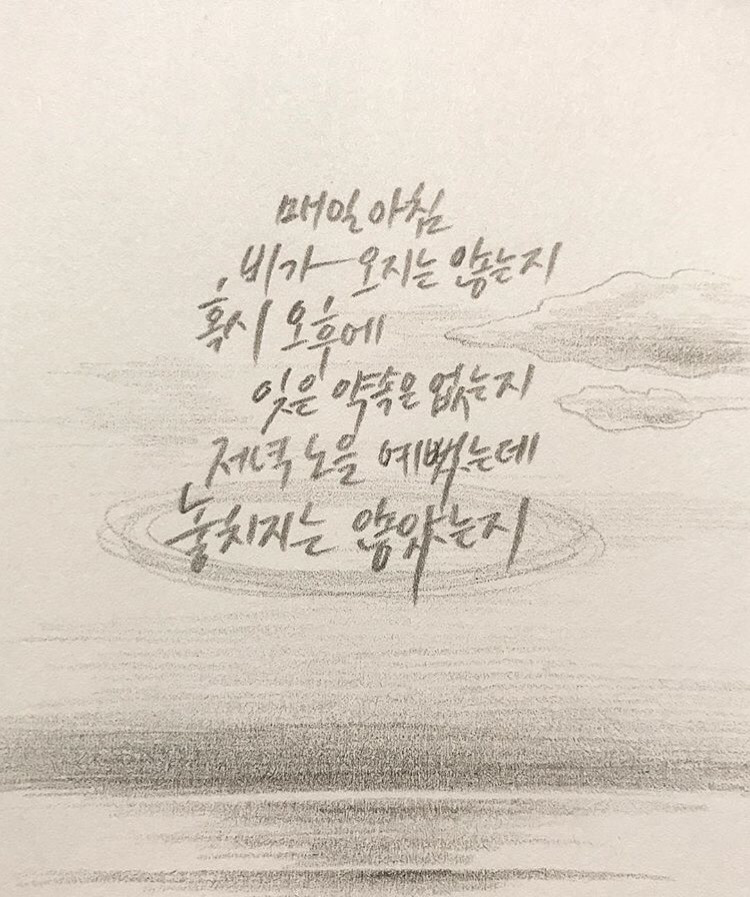 매일 아침
비가 오지는 않는지
혹시 오후에
잊은 약속은 없는지
저녁 노을 예뻤는데
놓치지는 않았는지